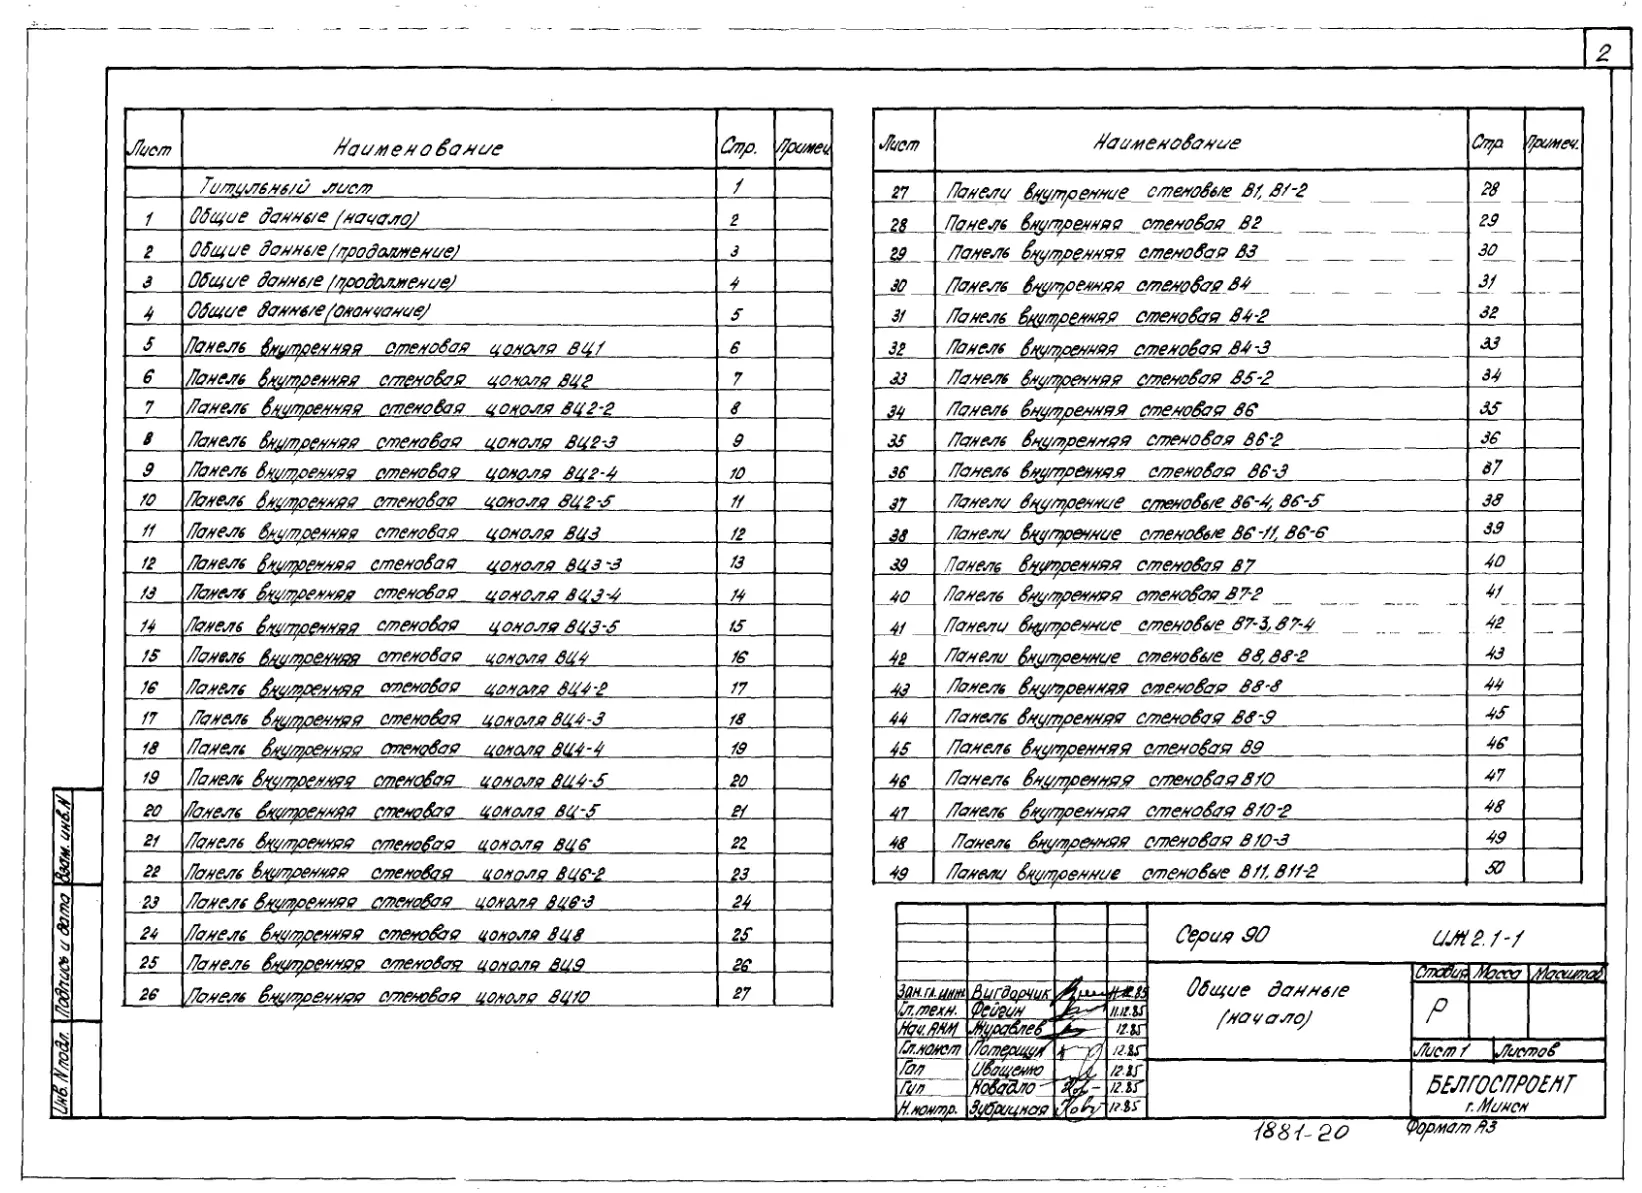 2
Лист Наименование Стр. Примеч.
Титульный лист 1
1 Общие данные (начало) 2
2 Общие данные (продолжение) 3
3 Общие данные (продолжение) 4
4 Общие данные (окончание) 5
5 Панель внутренняя стеновая цоколя ВЦ1 6
6 Панель внутренняя стеновая цоколя ВЦ2 7
7 Панель внутренняя стеновая цоколя ВЦ2-2 8
8 Панель внутренняя стеновая цоколя ВЦ2-3 9
9 Панель внутренняя стеновая цоколя ВЦ2-4 10
10 Панель внутренняя стеновая цоколя ВЦ2-5 11
11 Панель внутренняя стеновая цоколя ВЦ3 12
12 Панель внутренняя стеновая цоколя ВЦ3-3 13
13 Панель внутренняя стеновая цоколя ВЦ3-4 14
14 Панель внутренняя стеновая цоколя ВЦ3-5 15
15 Панель внутренняя стеновая цоколя ВЦ4 16
16 Панель внутренняя стеновая цоколя ВЦ4-2 17
17 Панель внутренняя стеновая цоколя ВЦ4-3 18
18 Панель внутренняя стеновая цоколя ВЦ4-4 19
19 Панель внутренняя стеновая цоколя ВЦ4-5 20
20 Панель внутренняя стеновая цоколя ВЦ-5 21
21 Панель внутренняя стеновая цоколя ВЦ6 22
22 Панель внутренняя стеновая цоколя ВЦ6-2 23
23 Панель внутренняя стеновая цоколя ВЦ6-3 24
24 Панель внутренняя стеновая цоколя ВЦ8 25
25 Панель внутренняя стеновая цоколя ВЦ9 26
26 Панель внутренняя стеновая цоколя ВЦ10 27
Лист Наименование Стр. Примеч.
27 Панели внутренние стеновые В1, В1-2 28
28 Панель внутренняя стеновая В2 29
29 Панель внутренняя стеновая В3 30
30 Панель внутренняя стеновая В4 31
31 Панель внутренняя стеновая В4-2 32
32 Панель внутренняя стеновая В4-3 33
33 Панель внутренняя стеновая В5-2 34
34 Панель внутренняя стеновая В6 35
35 Панель внутренняя стеновая В6-2 36
36 Панель внутренняя стеновая В6-3 37
37 Панели внутренние стеновые В6-4, В6-5 38
38 Панели внутренние стеновые В6-11, В6-6 39
39 Панель внутренняя стеновая В7 40
40 Панель внутренняя стеновая В7-2 41
41 Панели внутренние стеновые В7-3, В7-4 42
42 Панели внутренние стеновые В8, В8-2 43
43 Панель внутренняя стеновая В8-8 44
44 Панель внутренняя стеновая В8-9 45
45 Панель внутренняя стеновая В9 46
46 Панель внутренняя стеновая В10 47
47 Панель внутренняя стеновая В10-2 48
48 Панель внутренняя стеновая В10-3 49
49 Панели внутренние стеновые В11, В11-2 50
Серия 90 ИЖ 2.1-1
Общие данные
(начало)
Стадия Масса Масштаб
Р
Лист 1 Листов
БЕЛГОСПРОЕКТ
г. Минск
Зам.гл.инж. Вигдорчик
Гл.техн. Фейгин 11.12.85
Нач.АКМ Журавлев 12.85
Гл.конст Потерщук 12.85
Гап Иващенко 12.85
Гип Ковадло 12.85
Н.контр. Зубрицкая 12.85
Взам. инв.N
Подпись и дата
Инв. N подл.
1881-20
Формат А3